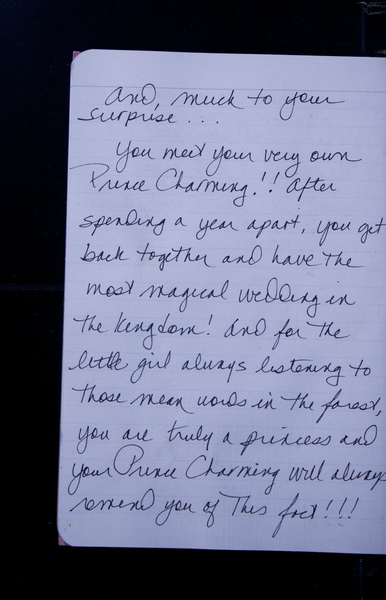 And, much to your
surprise...
You meet your very own
Prince Charming!! After
spending a year apart, you get
back together and have the
most magical wedding in
the kingdom! And for the
little girl always listening to
those mean words in the forest,
you are truly a princess and
your Prince Charming will always
remind you of this fact!!!